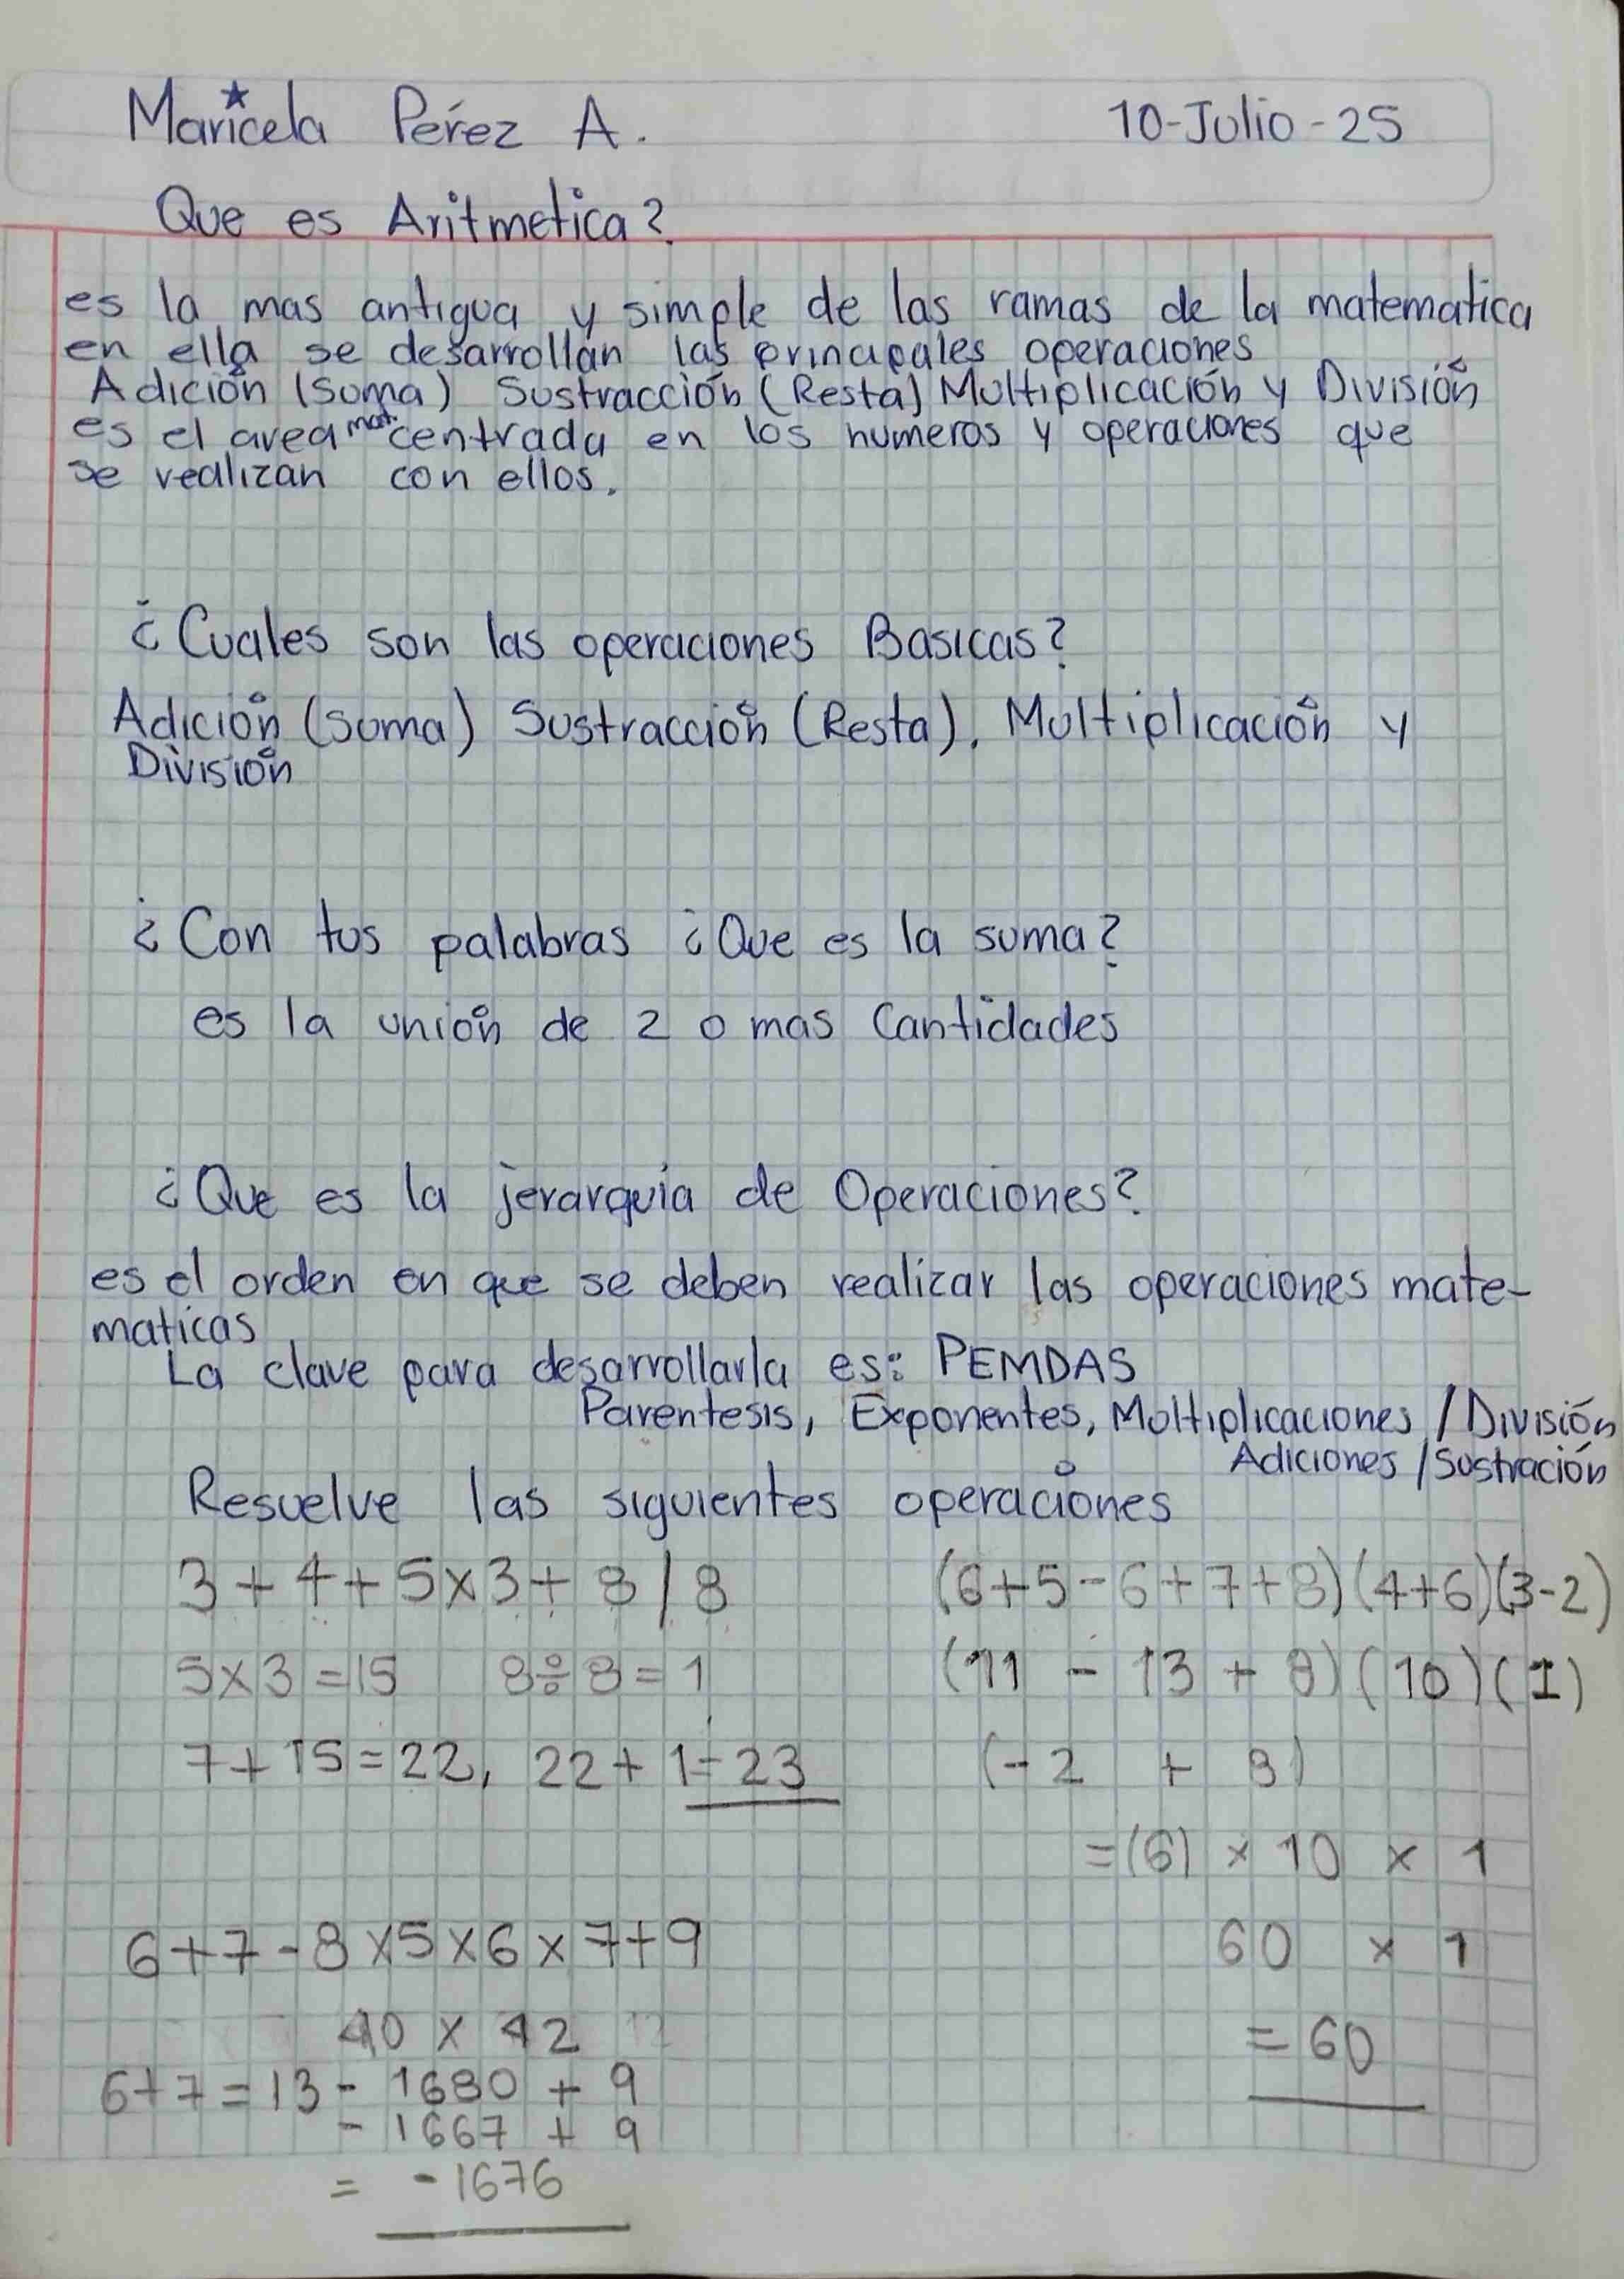 Maricela Pérez A. 10-Julio-25
Que es Aritmetica?
es la mas antigua y simple de las ramas de la matematica
en ella se desarrollan las principales operaciones
Adición (Suma) Sustracción (Resta) Multiplicación y División
es el area mat. centrada en los numeros y operaciones que
se realizan con ellos.
¿Cuales son las operaciones Basicas?
Adición (suma) Sustracción (Resta), Multiplicación y
División
¿Con tus palabras ¿Que es la suma?
es la unión de 2 o mas Cantidades
¿Que es la jerarquia de Operaciones?
es el orden en que se deben realizar las operaciones mate-
maticas
La clave para desarrollarla es: PEMDAS
Parentesis, Exponentes, Multiplicaciones / División
Adiciones / Sustración
Resuelve las siguientes operaciones
3 + 4 + 5 x 3 + 8 / 8
5 x 3 = 15 8 ÷ 8 = 1
7 + 15 = 22, 22 + 1 = 23
(6+5-6+7+8)(4+6)(3-2)
(11 - 13 + 8)(10)(1)
(-2 + 8)
= (6) x 10 x 1
60 x 1
= 60
6+7-8x5x6x7+9
40 x 42
6+7=13 - 1680 + 9
- 1667 + 9
= -1676